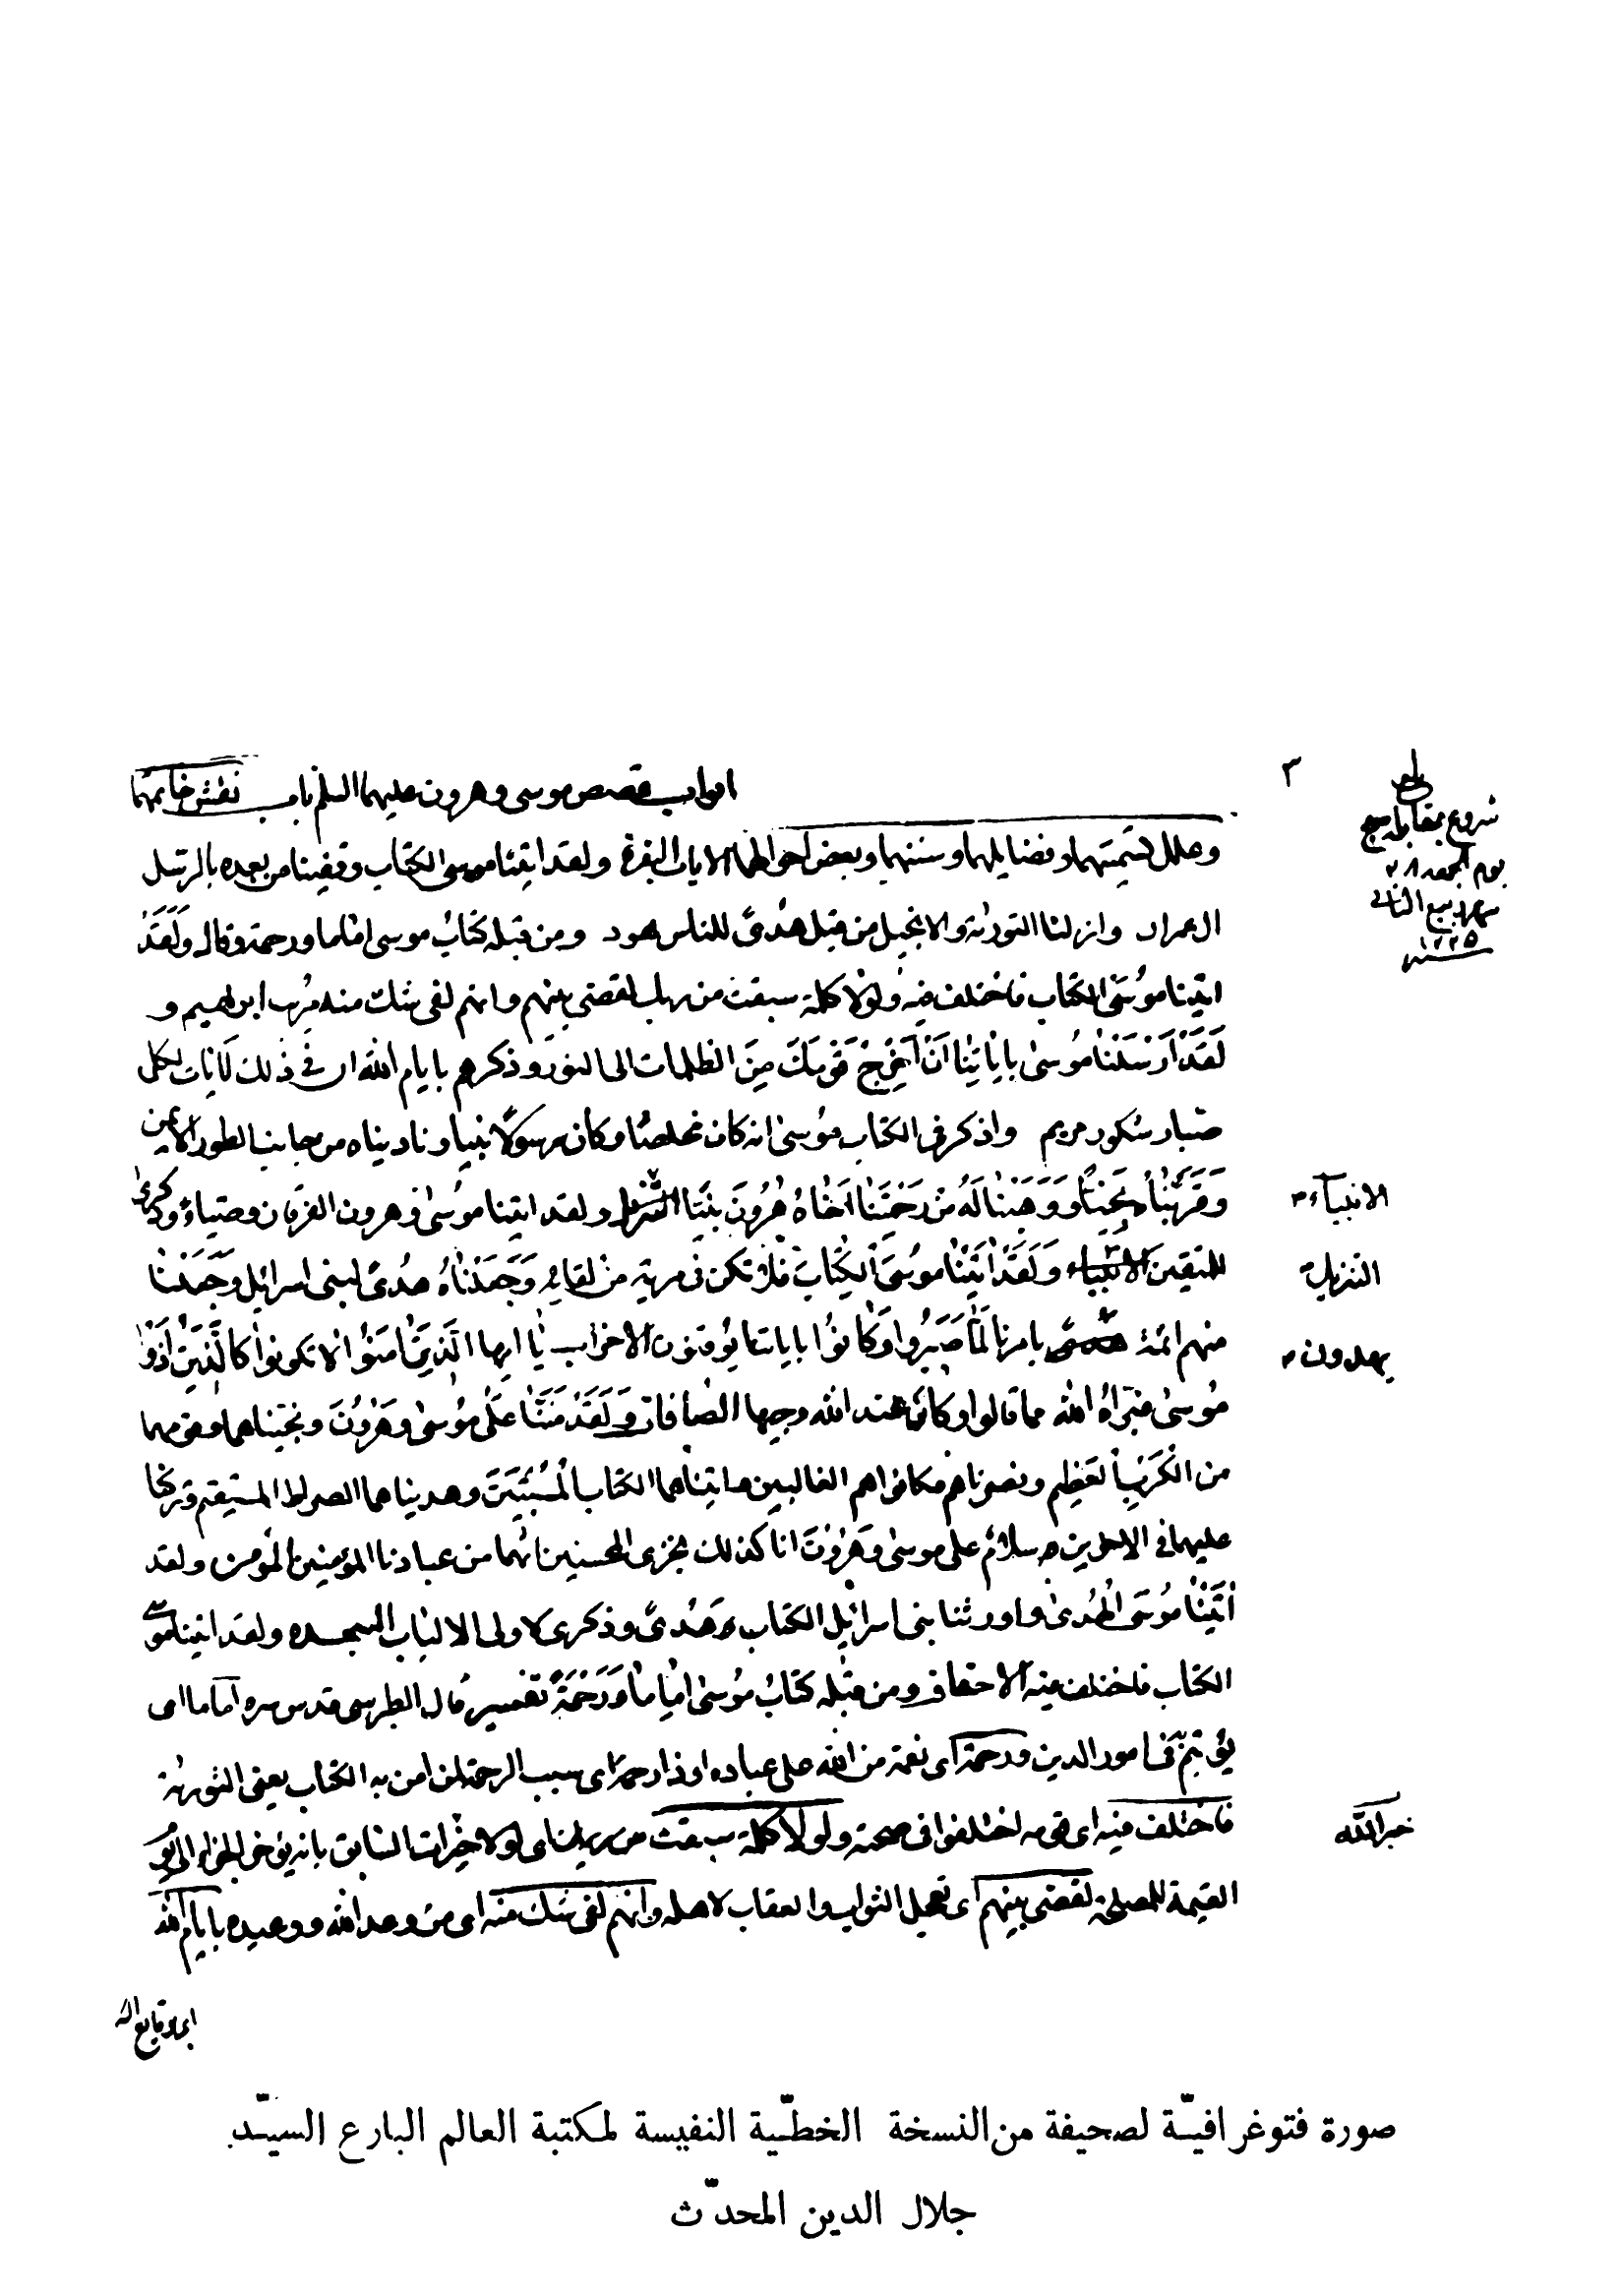 ابواب قصص موسى وهرون عليهما السلم باب نقش خاتمهما
وعلل تسميتهما وفضايلهما وسننهما وبعض احوالهما الايات البقرة ولقد اتينا موسى الكتاب وقفينا من بعده بالرسل
ال عمران وانزلنا التورية والانجيل من قبل هُدىً للناس هود ومن قبله كتابُ موسى اماما ورحمة وقال وَلَقَدْ
اتينا مُوسَى الكتاب فاختلف فيه ولولا كلمة سبقت من ربك لقضى بينهم وانهم لفى شك منه مُريب ابرهيم و
لَقَدْ اَرْسَلْنٰا مُوسىٰ بِاٰيٰاتِنٰا اَنْ اَخْرِجْ قَوْمَكَ مِنَ الظلمات الى النور وذكرهم بايام الله ان فى ذٰلك لَاٰيات لكل
صبار شكور مريم واذكر فى الكتاب موُسىٰ انه كان مخلصًا وكان رسولًا نبيا وناديناه من جانب الطور الايمن
وَقَرَّبْنٰاهُ نَجِيًّا وَوَهَبْنٰا لَهُ مِنْ رَحْمَتِنٰا اَخٰاهُ هٰرُونَ نَبِيًّا ولقد اتينا موُسىٰ وهرون الفرقان وضياءً وذكرىٰ
الانبياء
للمتقين وَلَقَدْ اٰتَيْنٰا موُسَى الْكِتٰابَ فلا تكن فى مرية من لقائه وَجَعَلْنٰاهُ هُدىً لبنى اسرائيل وَجَعَلْنٰا
التنزيل
منهم ائمة بامرنا لَمّٰا صَبَرُوا وَكٰانوُا باياتنا يوُقنون الاحزاب يٰا ايها الَّذينَ اٰمَنوُا لا تكونوا كَالَّذينَ اٰذَوْا
يهدون
مُوسىٰ فبرّاهُ الله مما قالوا وكانَ عند الله وجيها الصافات وَلَقَدْ مَنَنّٰا عَلىٰ موُسىٰ وَهٰرُونَ ونجيناهما وقومهما
من الْكَرْبِ الْعَظِيمِ ونصرناهم فكانوا هم الغالبين واتيناهما الكتاب الْمُسْتَبينَ وهديناهما الصراط المستقيم وتركنا
عليهما فى الاخرين سلامٌ على موسىٰ وَهٰرُونَ انا كذلك نجزى المحسنين انهما من عبادنا المؤمنين المؤمن ولقد
اٰتَيْنٰا مُوسَى الْهُدىٰ واورثنا بنى اسرائيل الكتاب هُدىً وذكرى لاولى الالباب السجده ولقد اتينا موسى
الكتاب فاختلف فيه الاحقاف ومن قبله كتابُ مُوسىٰ اِمٰاماً وَرَحْمَةً تفسير قال الطبرسى قدس سره اماما اى
يؤتمّ به فى امور الدين ورحمة اى نعمة من الله على عباده او ذا رحمة اى سبب الرحمة لمن امن به الكتاب يعنى التورية
فاختلف فيه اى قومه اختلفوا فى صحته ولولا كلمة سبقت من ربك اى لولا خبر السابق بانه يؤخر الجزاء الى يوم
خبر الله
القيمة للمصلحة لقضى بينهم اى لعجل الثواب والعقاب لاهله وانهم لفى شك منه اى من وعد الله ووعيده بايام الله
اى بوقايع الله
٣
بلغ
شروع بمقابله
يوم الجمعه ٢٨
شهر ربيع الثانى
سنه ١٢٢٥
صورة فتوغرافيّة لصحيفة من النسخة الخطّية النفيسة لمكتبة العالم البارع السيّد
جلال الدين المحدّث